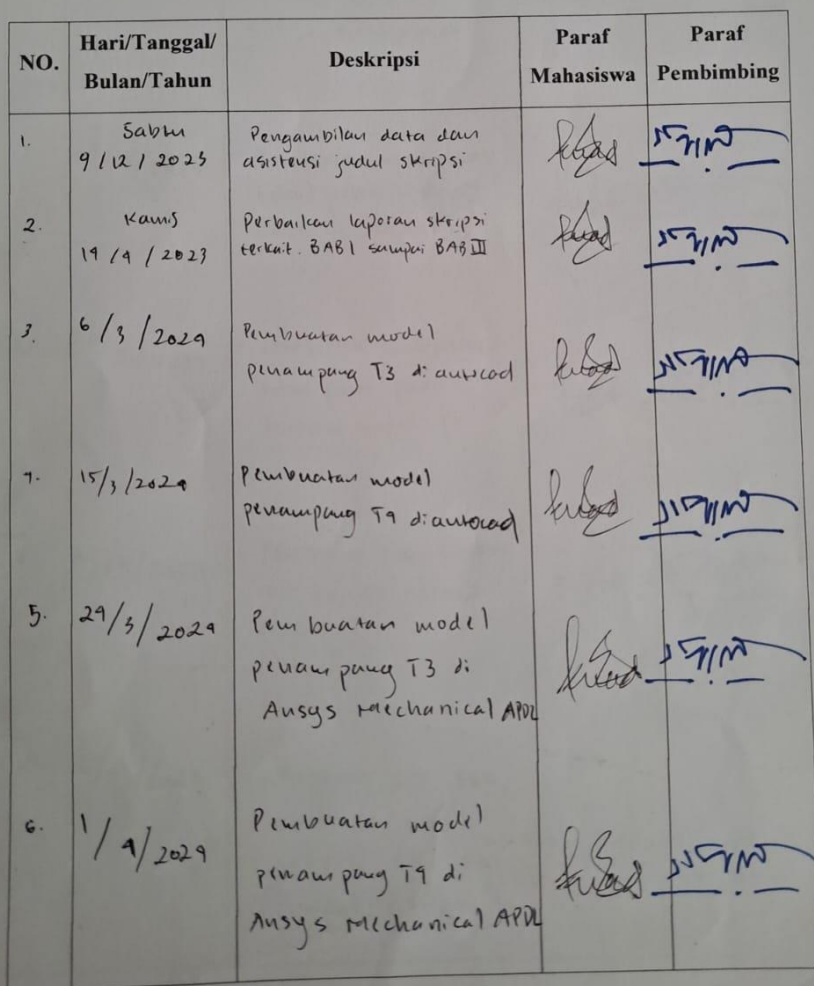 NO.
Hari/Tanggal/
Bulan/Tahun
Deskripsi
Paraf
Mahasiswa
Paraf
Pembimbing
1.
Sabtu
9/12/2023
Pengambilan data dan
asistensi judul skripsi
2.
Kamis
14/4/2023
Perbaikan laporan skripsi
terkait. BAB I sampai BAB III
3.
6/3/2024
Pembuatan model
penampang T3 di autocad
4.
15/3/2024
Pembuatan model
penampang T4 di autocad
5.
24/3/2024
Pembuatan model
penampang T3 di
Ansys Mechanical APDL
6.
1/4/2024
Pembuatan model
penampang T4 di
Ansys Mechanical APDL